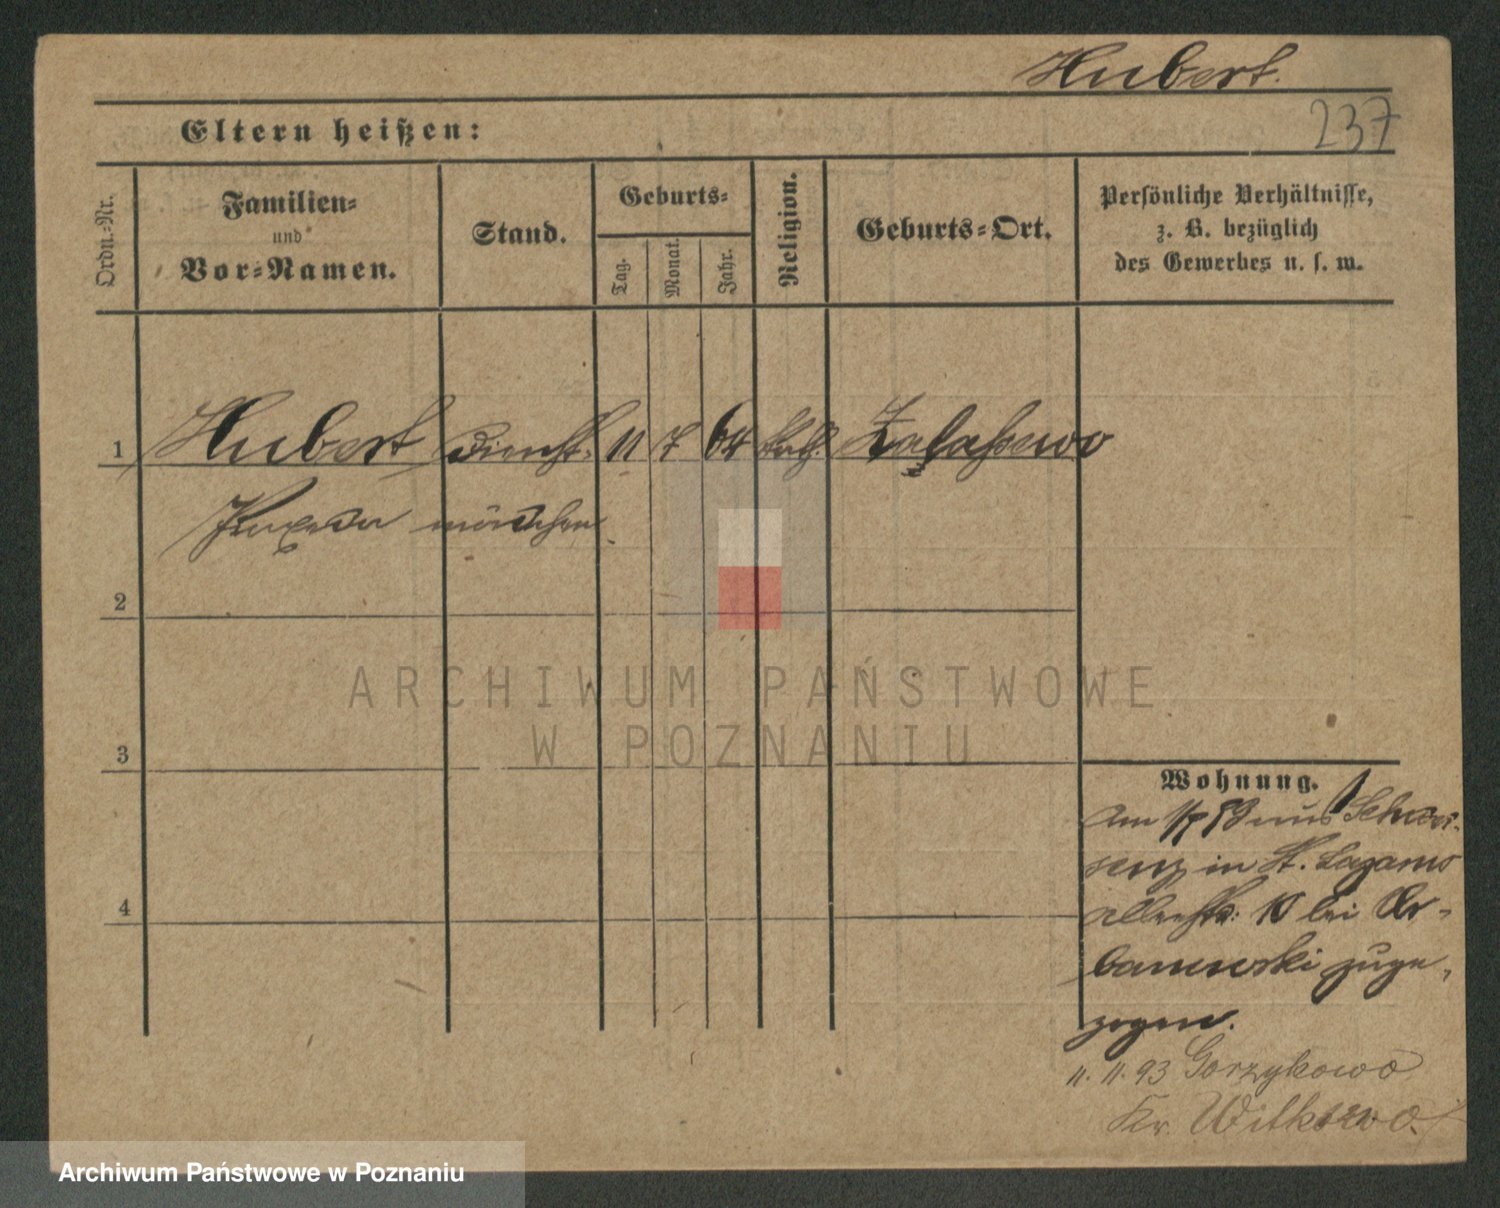 Hubert.
237
Eltern heißen:
Ordn.-Nr.
Familien-
und
Vor-Namen.
Stand.
Geburts-
Tag.
Monat.
Jahr.
Religion.
Geburts-Ort.
Persönliche Verhältnisse,
z. B. bezüglich
des Gewerbes u. s. w.
1 Hubert Dienst- 11 7 64 kath. Zalasewo
mädchen
2
3
4
ARCHIWUM PAŃSTWOWE
W POZNANIU
Wohnung.
Am 1/7 93 aus Schwer-
senz in St. Lazarus
10 bei Ur-
banowski zuge-
zogen.
11. 11. 93 Gorzykowo
Kr. Witkowo.
Archiwum Państwowe w Poznaniu